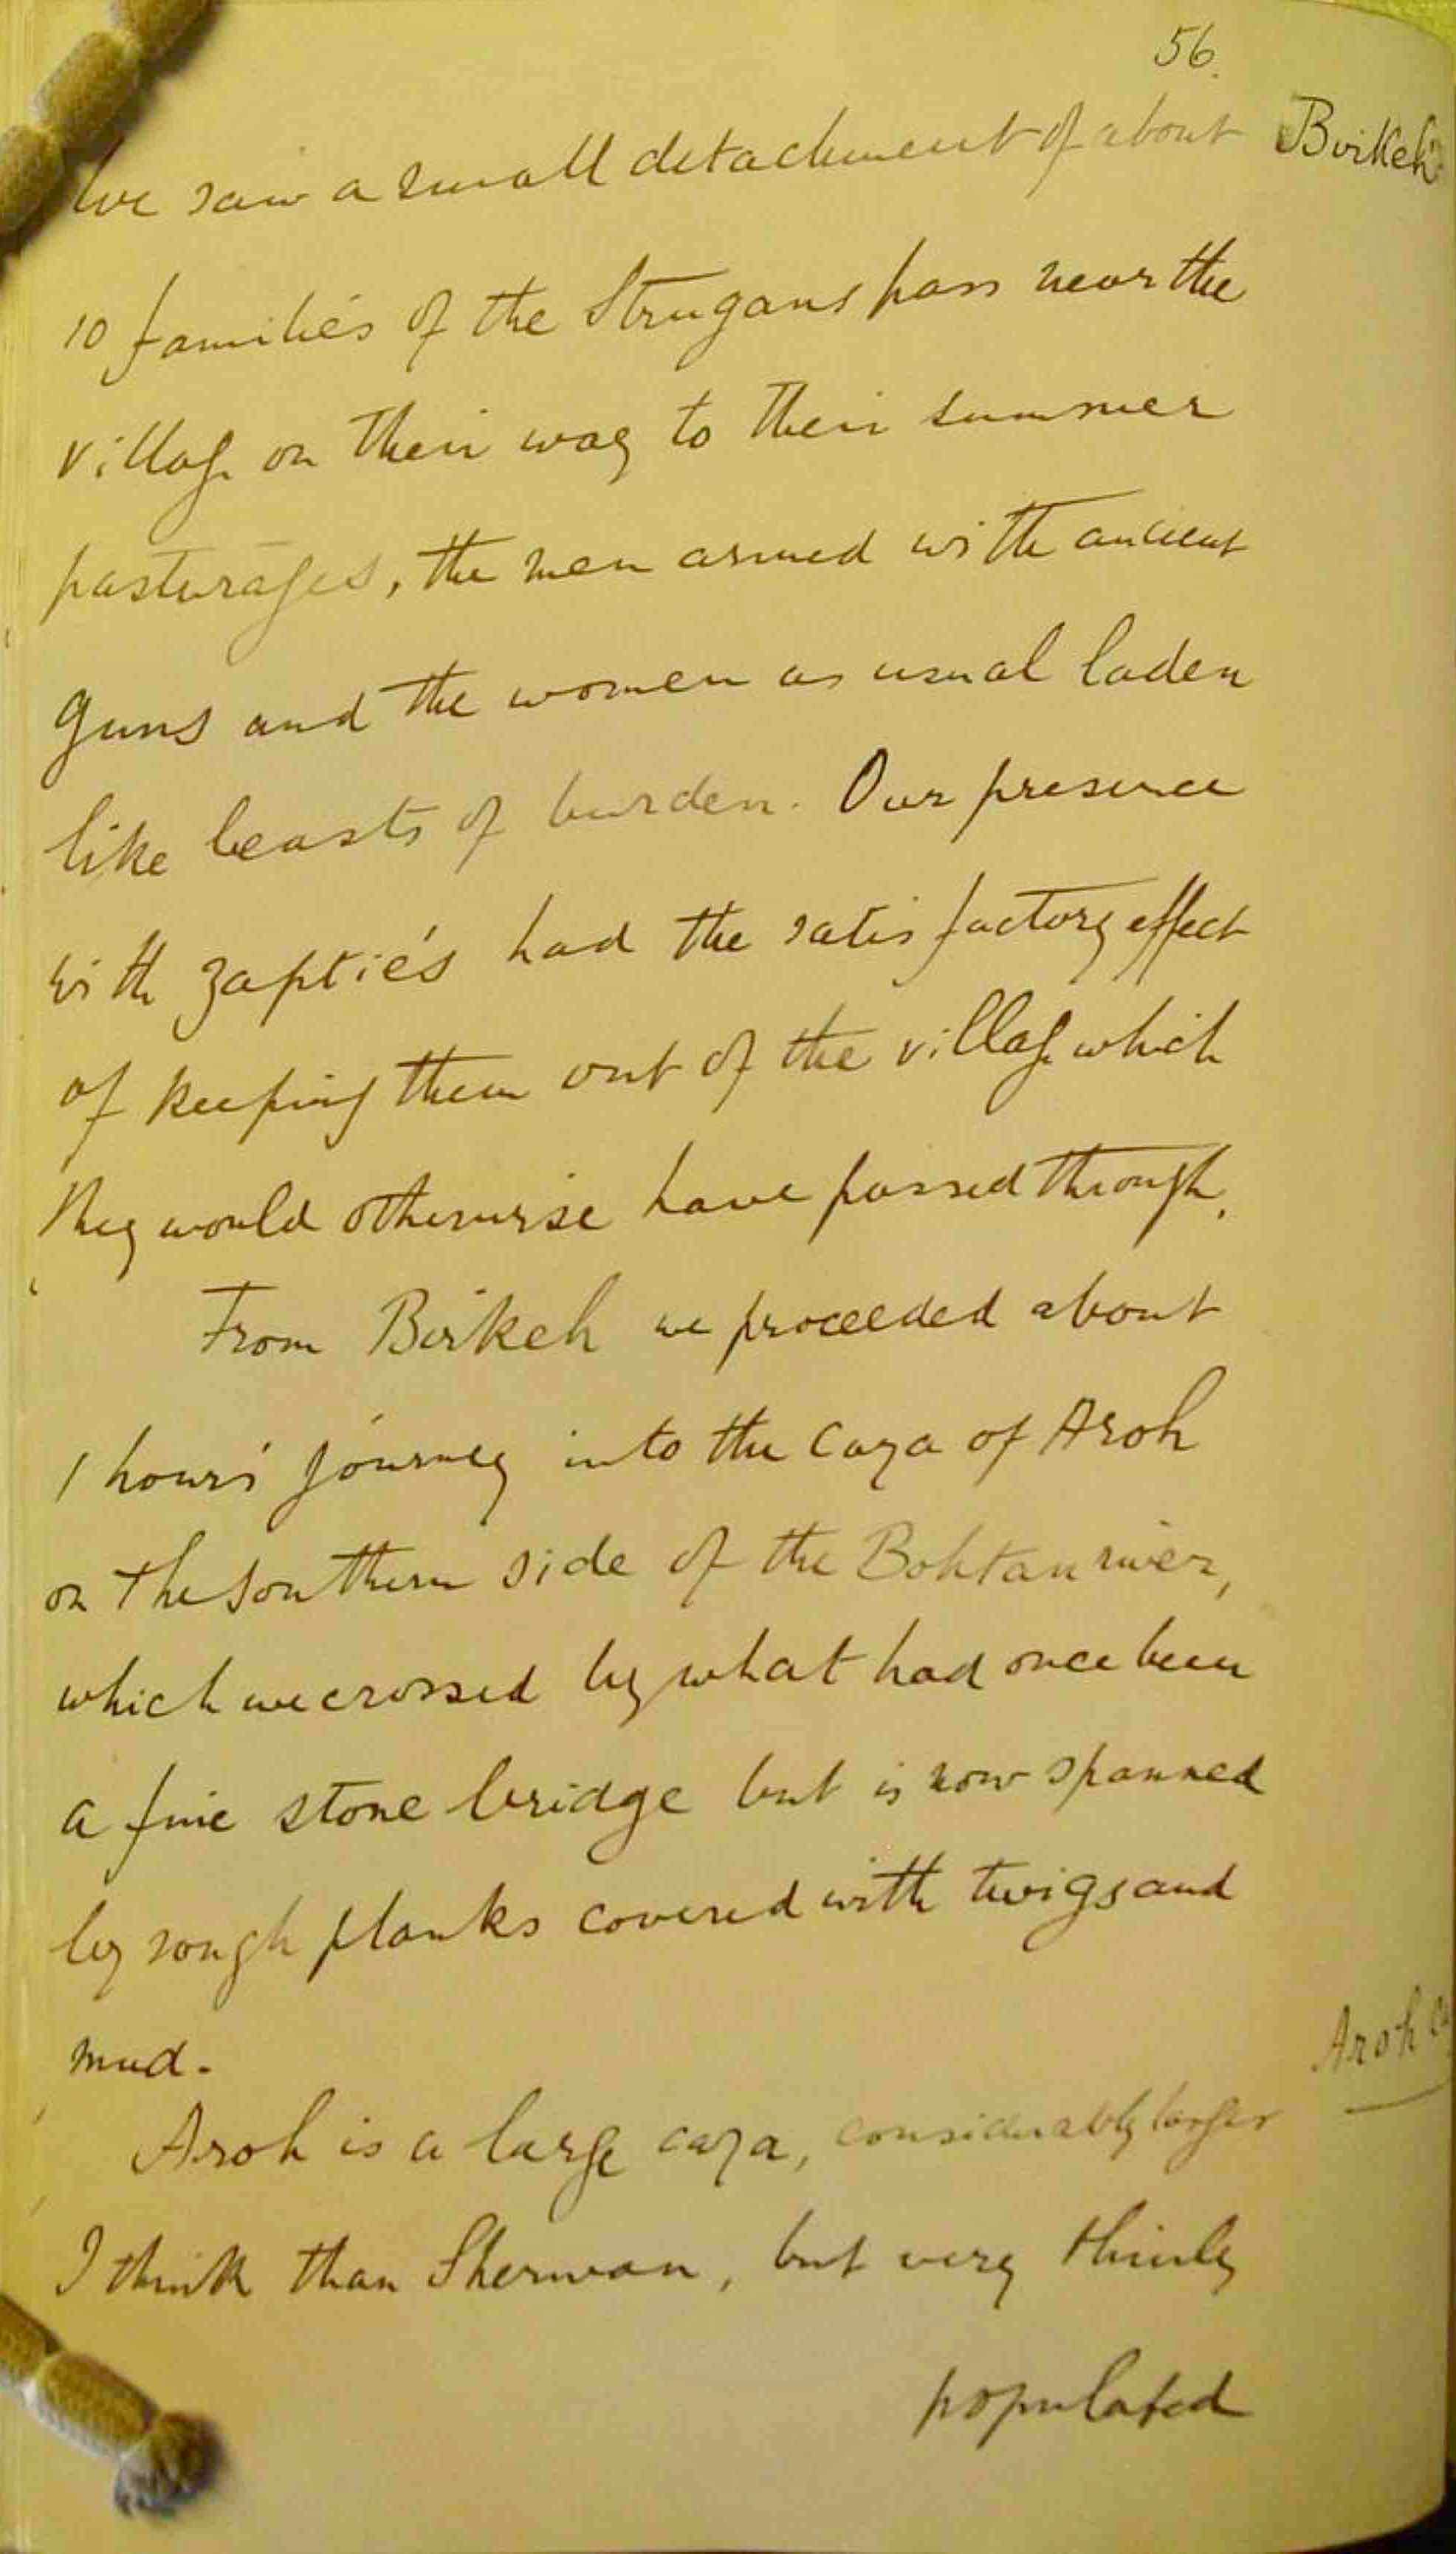 56.
Birkeh
We saw a small detachment of about
10 families of the Strugans pass near the
village on their way to their summer
pasturages, the men armed with ancient
guns and the women as usual laden
like beasts of burden. Our presence
with zaptiés had the satisfactory effect
of keeping them out of the village which
they would otherwise have passed through.
From Birkeh we proceeded about
1 hours' journey into the Caza of Aroh
on the southern side of the Bohtan river,
which we crossed by what had once been
a fine stone bridge but is now spanned
by rough planks covered with twigs and
mud.
Aroh
Aroh is a large caza, considerably larger
I think than Sherwan, but very thinly
populated